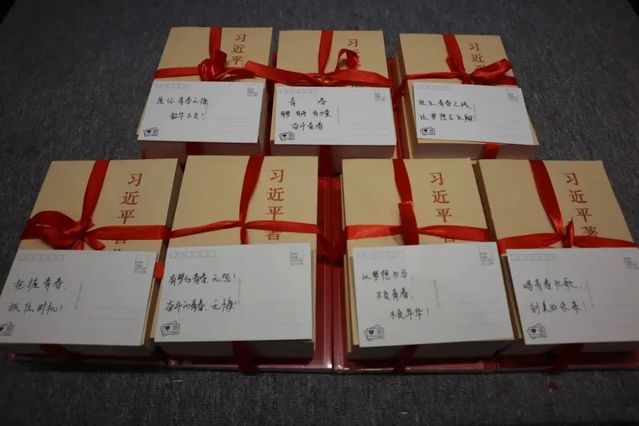 习近平
愿你青春无悔
韶华不负!
习近平
青 春
有梦 有诗 有力量
奋斗青春
放飞青春之线,
让梦想飞翔!
习近平
把握青春,
抓住时机!
习近平著
有梦的青春无怨!
奋斗的青春无悔!
习近平著
以梦想为马,
不负青春,
不负年华!
习近平著
唱青春长歌,
创美好未来!